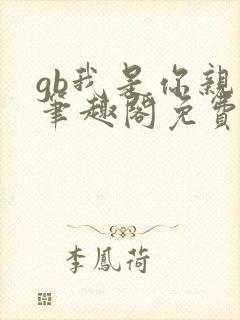 gb我是你親
筆趣閣免費
李鳳荷